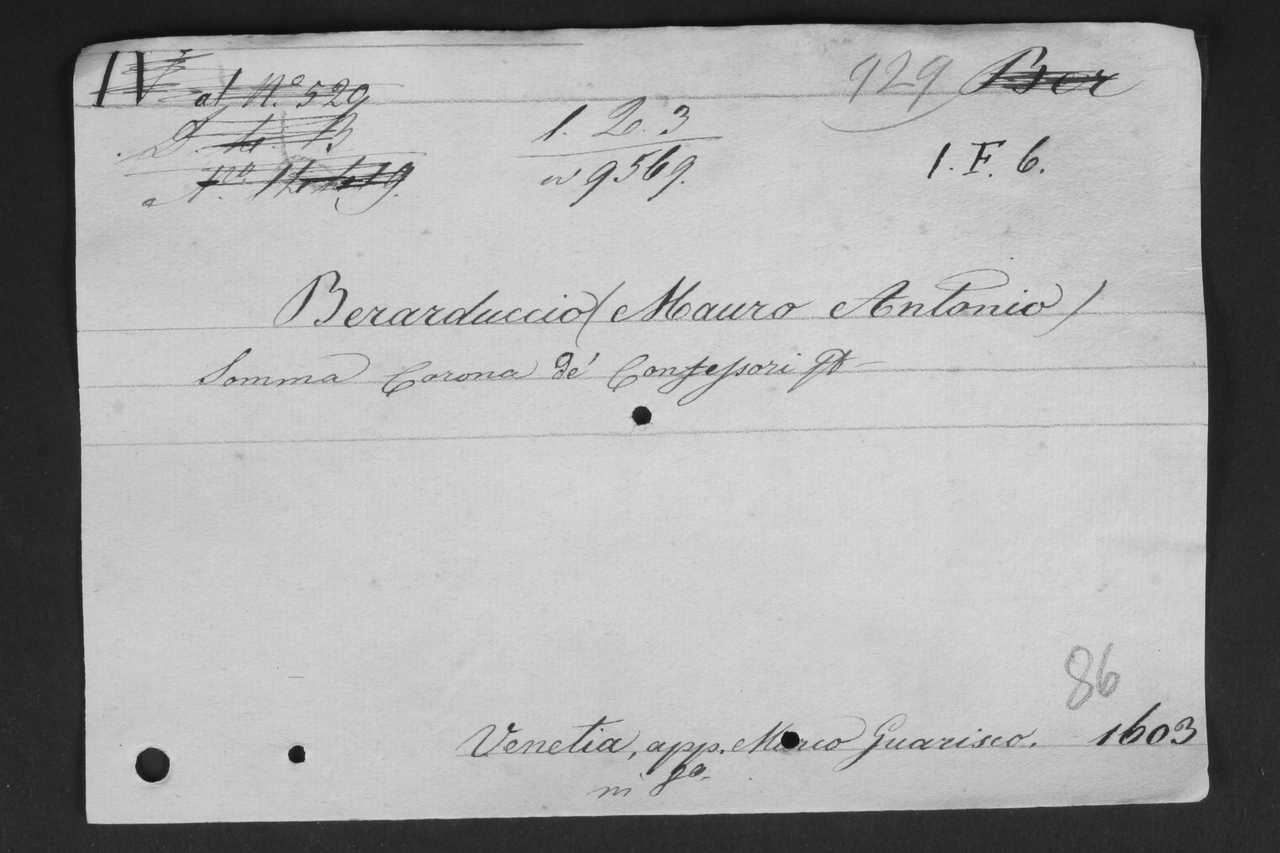 IV
al N.o 529
929 Ber
1. 2. 3
1. F. 6.
9569.
Berarduccio (Mauro Antonio)
Somma Corona dé Confessori
86
Venetia, app. Marco Guarisco. 1603
in 8o.